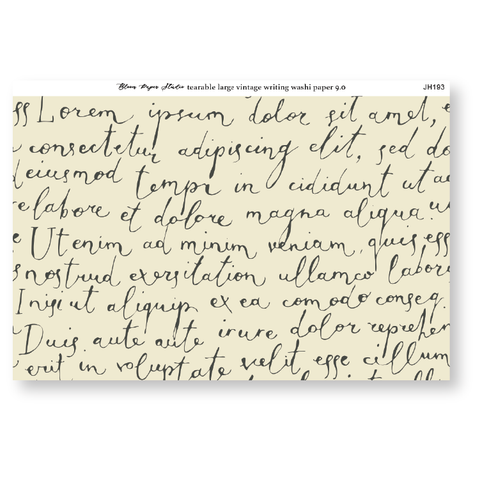 Bloom Paper Studio tearable large vintage writing washi paper 9.0 JH193
ss Lorem ipsum dolor sit amet, e
consectetur adipiscing elit, sed do
deiusmod tempr in cididunt ut ac
elabore et dolore magna aliqua. u
e Ut enim ad minim veniam, quis ess
snostrud exersitation ullamco labori
Inisi ut aliquip ex ea comodo conseq.
Duis aute aute irure dolor reprehen
erit in voluptate velit esse cillum